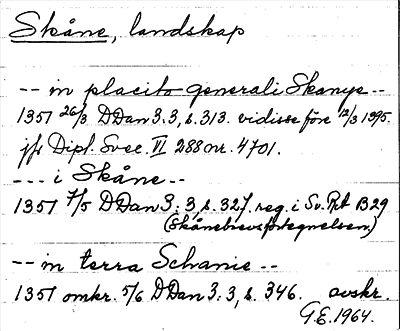 Skåne, landskap
-- in placito generali Skanye --
1351 26/3 DDan 3:3, s. 313. vidisse före 12/3 1395.
jfr Dipl. Svec. VI 288 nr. 4701.
--- i Skåne --
1351 7/5 DDan 3:3, s. 327. reg. i Sv. Ret B 29
(Skånebrevsförtegnelsen)
-- in terra Schanie --
1351 omkr. 5/6 DDan 3:3, s. 346. avskr.
G.E. 1964.